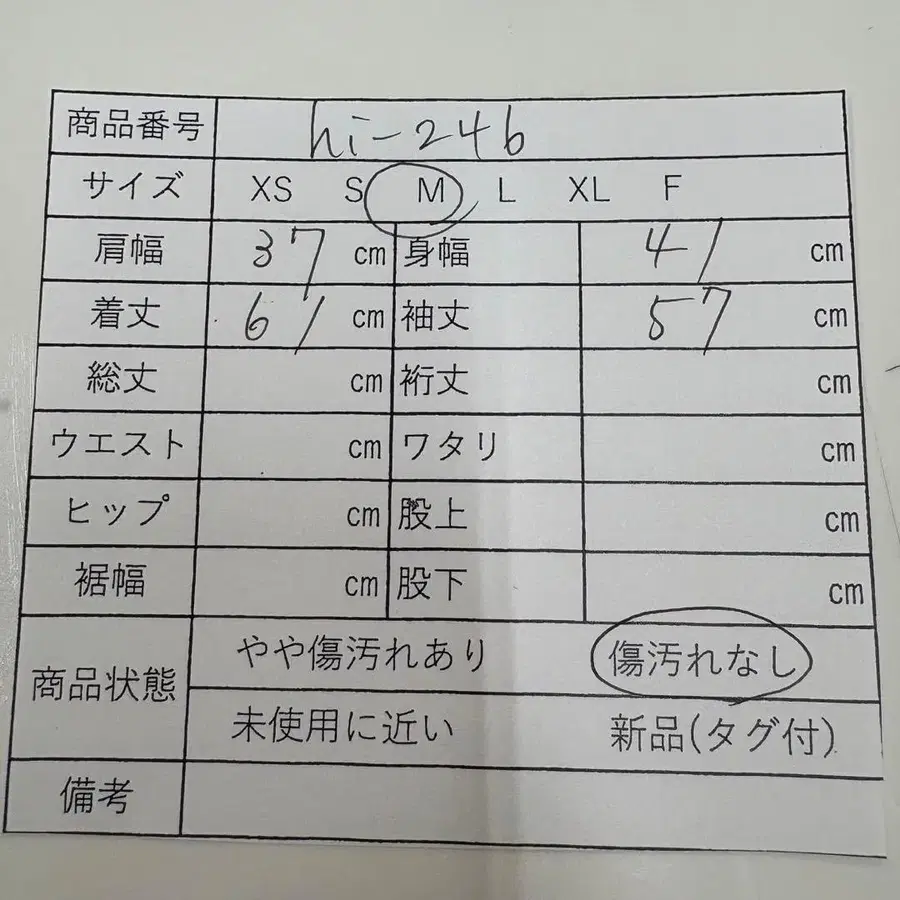 商品番号 hi-246
サイズ XS S M L XL F
肩幅 37 cm 身幅 41 cm
着丈 61 cm 袖丈 57 cm
総丈 cm 裄丈 cm
ウエスト cm ワタリ cm
ヒップ cm 股上 cm
裾幅 cm 股下 cm
商品状態 やや傷汚れあり 傷汚れなし
未使用に近い 新品(タグ付)
備考